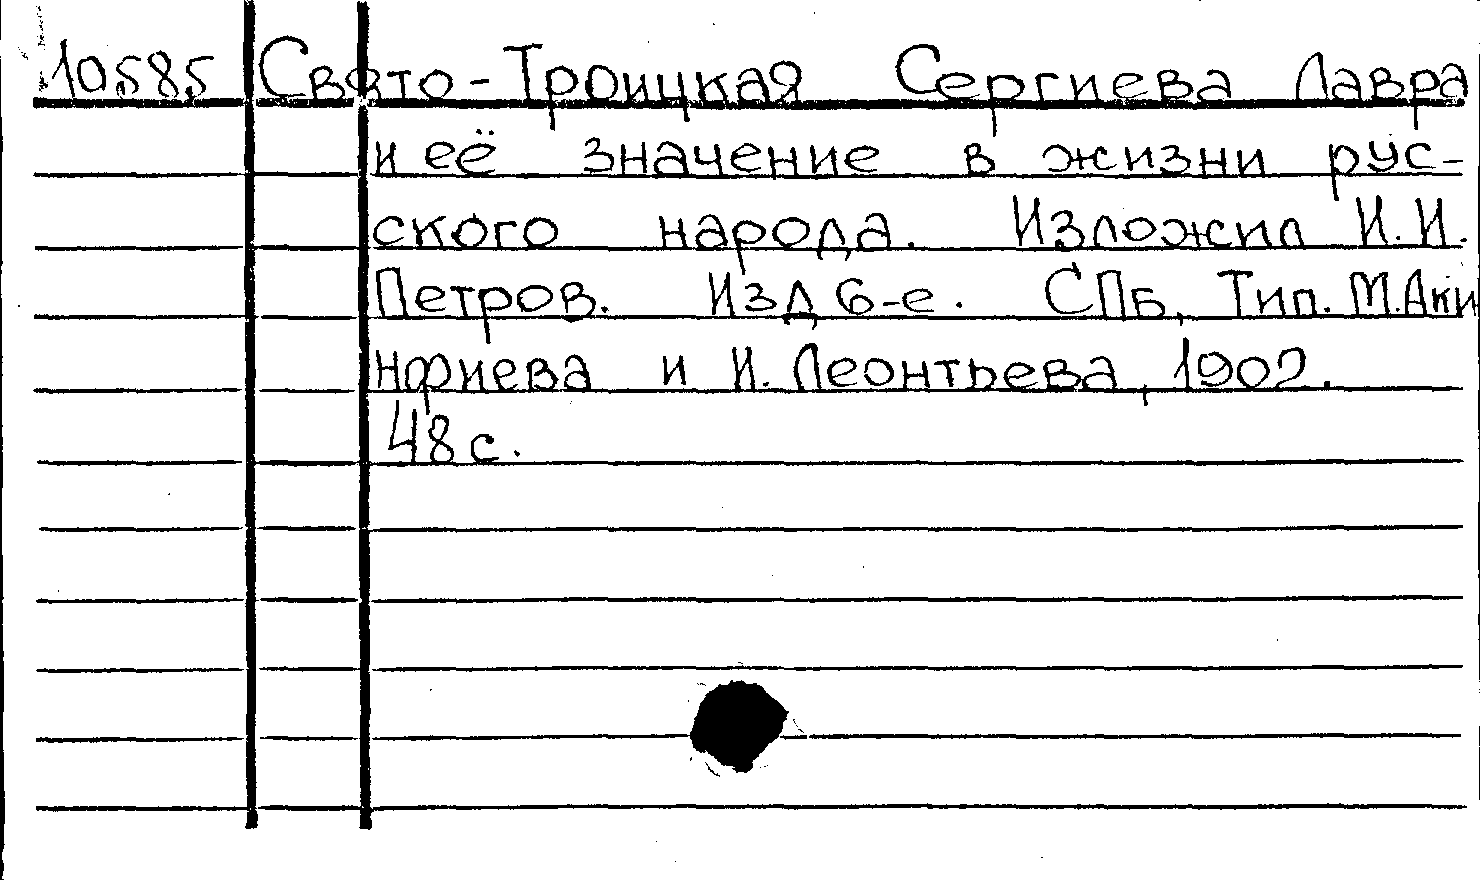 10585 Свято-Троицкая Сергиева Лавра
и её значение в жизни рус-
ского народа. Изложил И.И.
Петров. Изд 6-е. СПб, Тип. М.Аки
нфиева и И. Леонтьева, 1902.
48 с.